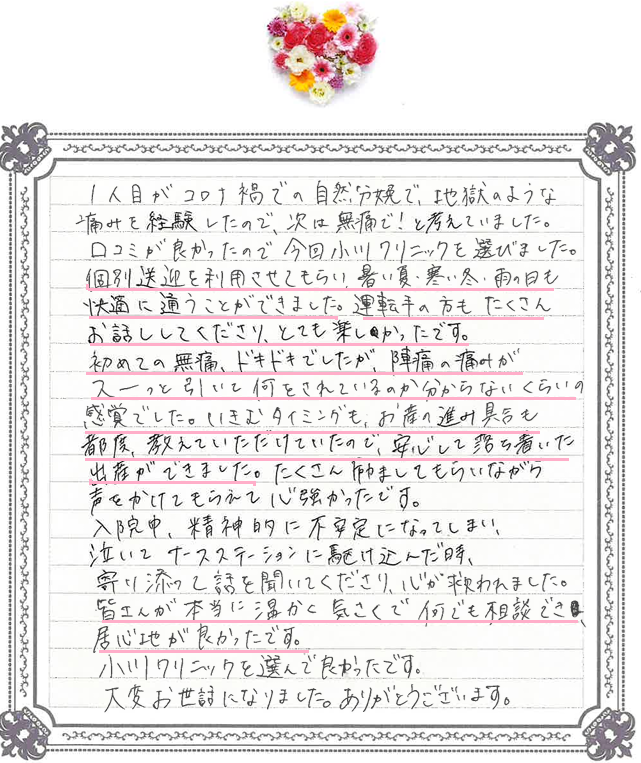 1人目がコロナ禍での自然分娩で、地獄のような
痛みを経験したので、次は無痛で!と考えていました。
口コミが良かったので今回小川クリニックを選びました。
個別送迎を利用させてもらい、暑い夏・寒い冬・雨の日も
快適に通うことができました。運転手の方もたくさん
お話ししてくださり、とても楽しかったです。
初めての無痛、ドキドキでしたが、陣痛の痛みが
スーっと引いて何をされているのか分からないくらいの
感覚でした。いきむタイミングも、お産の進み具合も
都度、教えていただけていたので、安心して落ち着いた
出産ができました。たくさん励ましてもらいながら
声をかけてもらえて心強かったです。
入院中、精神的に不安定になってしまい、
泣いてナースステーションに駆け込んだ時、
寄り添って話を聞いてくださり、心が救われました。
皆さんが本当に温かく気さくで何でも相談でき、
居心地が良かったです。
小川クリニックを選んで良かったです。
大変お世話になりました。ありがとうございます。